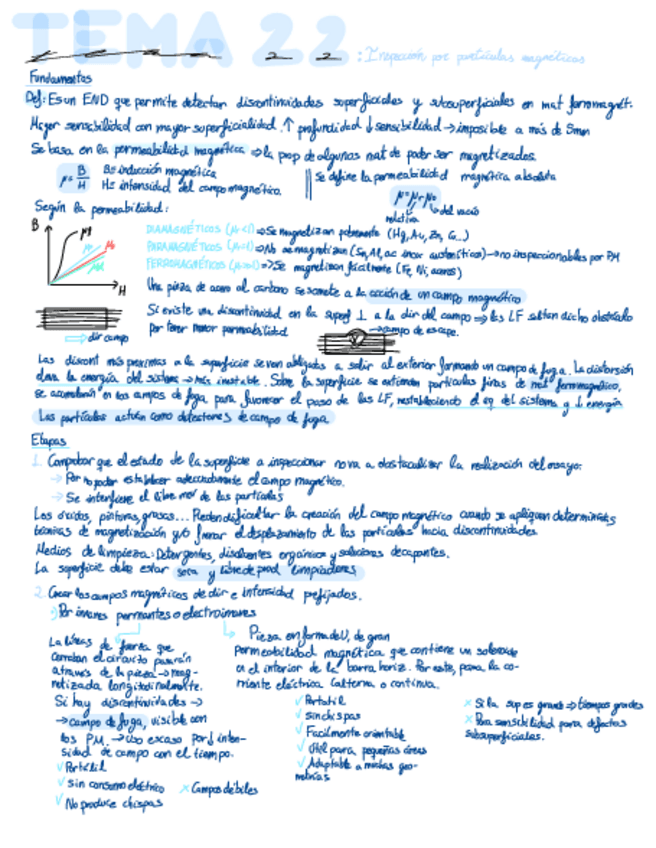 TEMA 22
Tema 22 : Inspección por partículas magnéticas
Fundamentos
Def: Es un END que permite detectar discontinuidades superficiales y subsuperficiales en mat ferromagnét.
Mayor sensibilidad con mayor superficialidad. ↑ profundidad ↓ sensibilidad → imposible a más de 5mm
Se basa en la permeabilidad magnética ⇒ la prop de algunos mat de poder ser magnetizados.
μ = B/H B≡ inducción magnética
H≡ intensidad del campo magnético.
Se define la permeabilidad magnética absoluta
μ = μr μo
relativa del vacío
Según la permeabilidad:
B
H
DIAMAGNÉTICOS (μ<1) ⇒ Se magnetizan pobremente (Hg, Au, Zn, C...)
PARAMAGNÉTICOS (μ≈1) ⇒ No se magnetizan (Sn, Al, ac inox austeníticos) → no inspeccionables por PM
FERROMAGNÉTICOS (μ>>1) ⇒ Se magnetizan fácilmente (Fe, Ni, aceros)
Una pieza de acero al carbono se somete a la acción de un campo magnético
Si existe una discontinuidad en la superf ⊥ a la dir del campo ⇒ las LF saltan dicho obstáculo
por tener menor permeabilidad
→ campo de escape.
dir campo
Las discont más próximas a la superficie se ven obligadas a salir al exterior formando un campo de fuga. La distorsión
eleva la energía del sistema → más inestable. Sobre la superficie se extienden partículas finas de mat ferromagnético,
se acumularán en los campos de fuga para favorecer el paso de las LF, restableciendo el eq del sistema y ↓ energía
Las partículas actúan como detectores de campo de fuga
Etapas
1. Comprobar que el estado de la superficie a inspeccionar no va a obstaculizar la realización del ensayo:
→ Por no poder establecer adecuadamente el campo magnético.
→ Se interfiere el libre mov de las partículas
Los óxidos, pinturas, grasas... Pueden dificultar la creación del campo magnético cuando se apliquen determinadas
técnicas de magnetización y/o frenar el desplazamiento de las partículas hacia discontinuidades.
Medios de limpieza: Detergentes, disolventes orgánicos y soluciones decapantes.
La superficie debe estar seca y libre de prod limpiadores
2. Crear los campos magnéticos de dir e intensidad prefijados.
Por imanes permanentes o electroimanes
La líneas de fuerza que
cerraban el circuito pasarán
a través de la pieza → mag-
netizada longitudinalmente.
Si hay discontinuidades →
→ campo de fuga, visible con
las PM. → uso escaso por ↓ inten-
sidad de campo con el tiempo.
✓ Portátil
✓ sin consumo eléctrico
✓ No produce chispas
× Campos débiles
Pieza en forma de U, de gran
permeabilidad magnética que contiene un solenoide
en el interior de la barra horiz. Por este, pasa la co-
rriente eléctrica (alterna o continua.
✓ Portátil
✓ sin chispas
✓ Facilmente orientable
✓ Util para pequeñas áreas
✓ Adaptable a muchas geo-
metrías
× Si la sup es grande ⇒ tiempos grandes
× Poca sensibilidad para defectos
subsuperficiales.